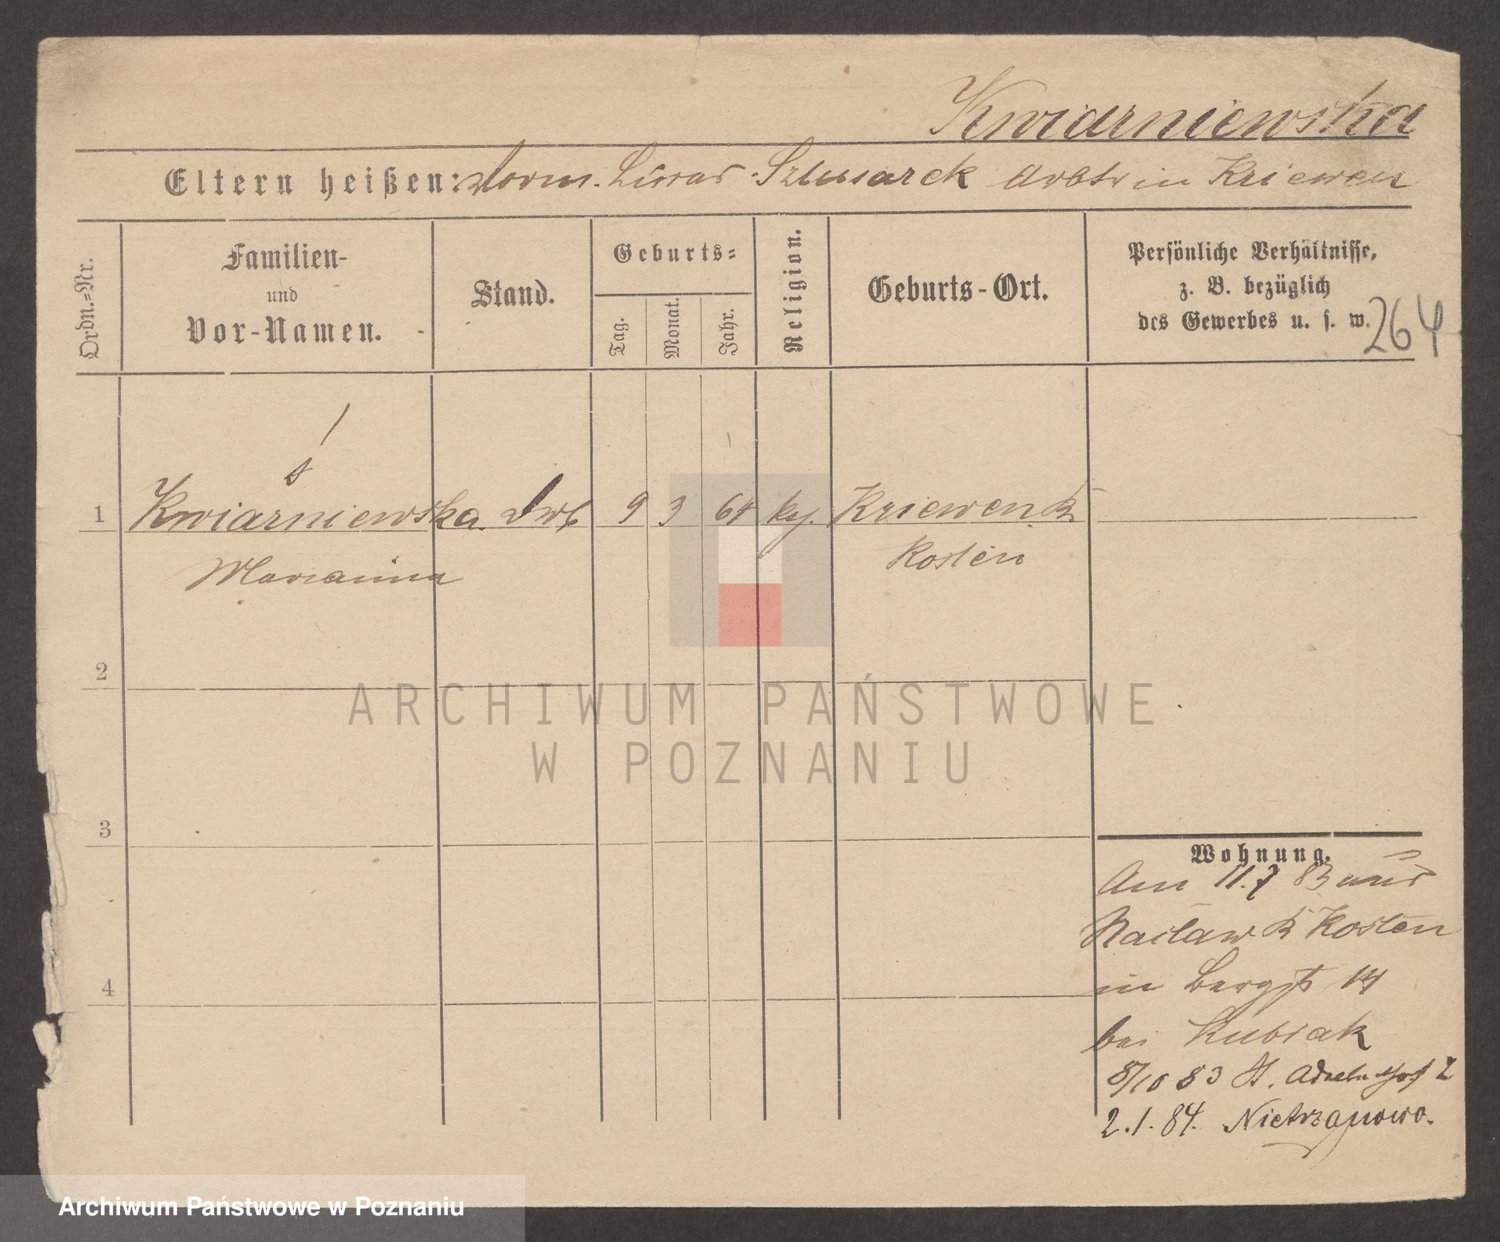 Kwiarniewska
Eltern heißen: Szlusarek Arbtr in Kriewen
Ordn.-Nr.
Familien-
und
Vor-Namen.
Stand.
Geburts-
Tag.
Monat.
Jahr.
Religion.
Geburts-Ort.
Persönliche Verhältnisse,
z. B. bezüglich
des Gewerbes u. s. w.
264
1 Kwiarniewska 9 3 61 Kriewen K
Marianna Kosten
2
ARCHIWUM PAŃSTWOWE
W POZNANIU
3
Wohnung.
Am 11.7 83 aus
Raclaw K Kosten
in Bergst 14
4
bei Kubiak
8/10 83
2.1.84. Nietrzanowo.
Archiwum Państwowe w Poznaniu